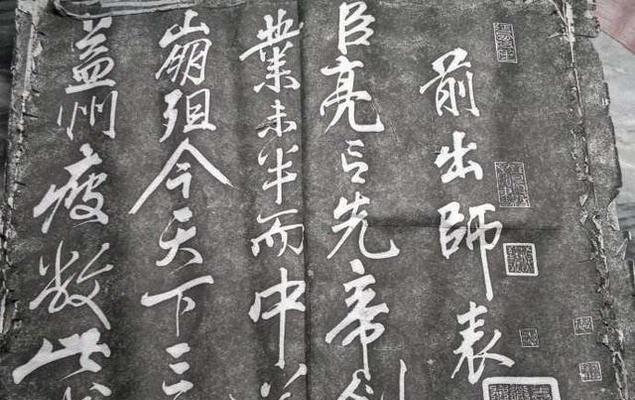 前出師表
臣亮言先帝創
業未半而中
崩殂今天下三
益州疲敝此